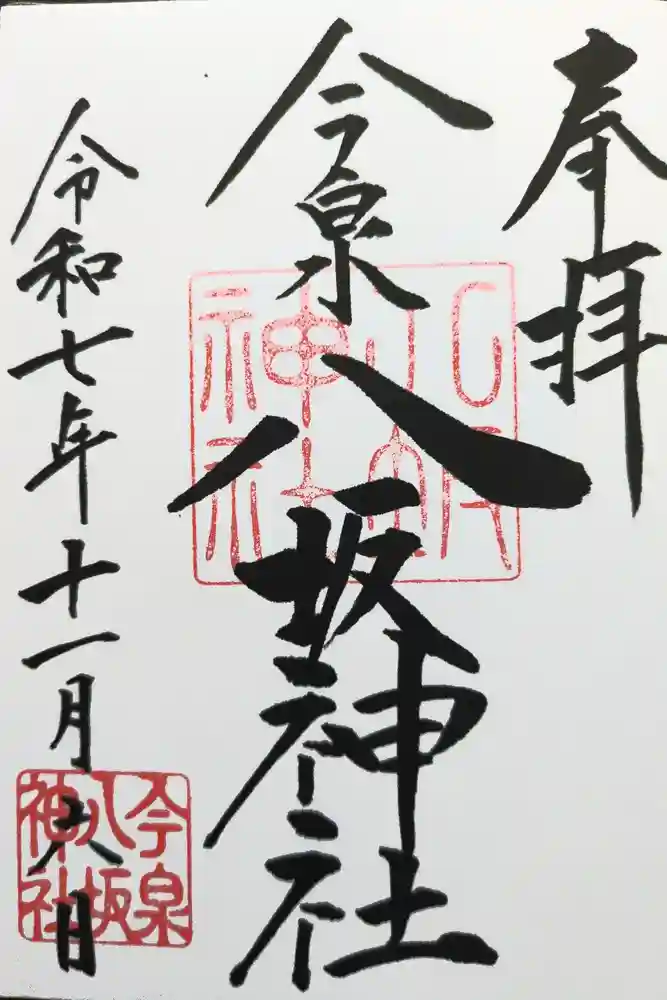 奉拝
今泉八坂神社
令和七年十一月六日
八坂
神社
今泉
八坂
神社